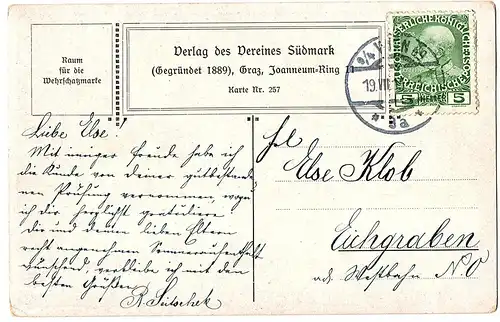 Raum
für die
Wehrschatzmarke
Verlag des Vereines Südmark
(Gegründet 1889), Graz, Joanneum-Ring 11
Karte Nr. 257
5 HELLER 5
WIEN
19.VII
* 9a *
Liebe Else!
Mit inniger Freude habe ich
die Kunde von deiner gutbestande-
nen Prüfung vernommen, wozu
ich dir herzlichst gratuliere
Dir und deinen lieben Eltern
recht angenehmen Sommeraufenthalt
wünschend, verbleibe ich mit den
besten Grüßen
Frl
Else Klob
Eichgraben
a.d. Westbahn N.Ö